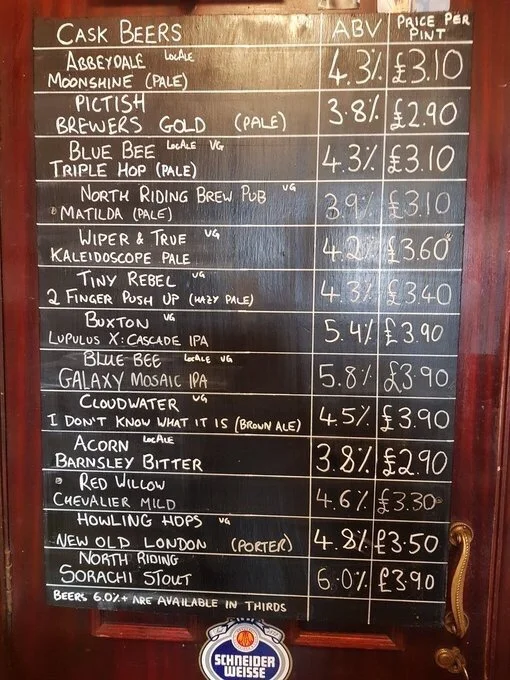 CASK BEERS ABV PRICE PER PINT
ABBEYDALE LocAle
MOONSHINE (PALE) 4.3% £3.10
PICTISH
BREWERS GOLD (PALE) 3.8% £2.90
BLUE BEE LocAle VG
TRIPLE HOP (PALE) 4.3% £3.10
NORTH RIDING BREW PUB VG
MATILDA (PALE) 3.9% £3.10
WIPER & TRUE VG
KALEIDOSCOPE PALE 4.2% £3.60
TINY REBEL VG
2 FINGER PUSH UP (HAZY PALE) 4.3% £3.40
BUXTON VG
LUPULUS X: CASCADE IPA 5.4% £3.90
BLUE BEE LocAle VG
GALAXY MOSAIC IPA 5.8% £3.90
CLOUDWATER VG
I DON'T KNOW WHAT IT IS (BROWN ALE) 4.5% £3.90
ACORN LocAle
BARNSLEY BITTER 3.8% £2.90
RED WILLOW
CHEVALIER MILD 4.6% £3.30
HOWLING HOPS VG
NEW OLD LONDON (PORTER) 4.8% £3.50
NORTH RIDING
SORACHI STOUT 6.0% £3.90
BEERS 6.0%+ ARE AVAILABLE IN THIRDS
SCHNEIDER
WEISSE